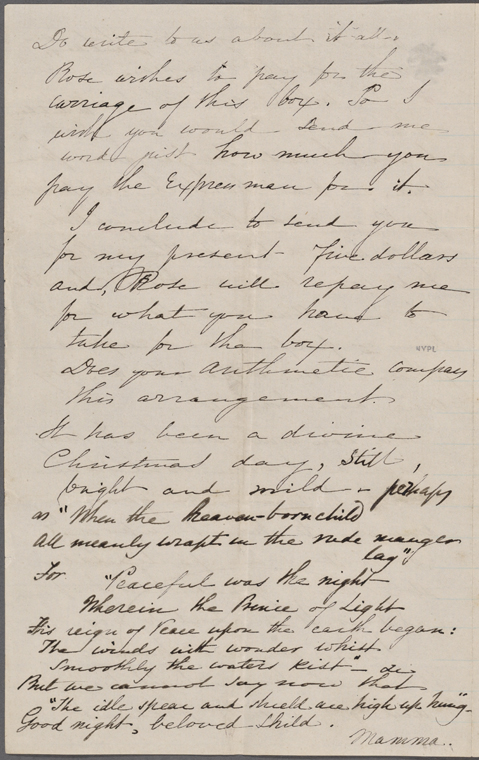 Do write to us about it all.
Rose wishes to pay for the
carriage of this box. So I
wish you would send me
word just how much you
pay the Expressman for it.
I conclude to send you
for my present - five dollars
and, Rose will repay me
for what you have to
take for the box.
NYPL
Does your Arithmetic compass
this arrangement.
It has been a divine
Christmas day, still,
bright and mild - perhaps
as "When the heaven-born child
All meanly wrapt in the rude manger
lay";
For "Peaceful was the night
Wherein the Prince of Light
His reign of Peace upon the earth began:
The winds with wonder whist
Smoothly the waters kist" -
But we cannot say now that
"The idle spear and shield are high up hung" -
Good night, beloved child.
Mamma..